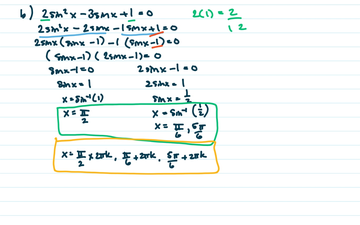 6) 2sin²x - 3sinx + 1 = 0
2(1) = 2
1 2
2sin²x - 2sinx - 1sinx + 1 = 0
2sinx (sinx - 1) - 1 (sinx - 1) = 0
(sinx - 1) (2sinx - 1) = 0
sinx - 1 = 0 2sinx - 1 = 0
sinx = 1 2sinx = 1
x = sin⁻¹(1) sinx = 1/2
x = π/2 x = sin⁻¹(1/2)
x = π/6, 5π/6
x = π/2 + 2πk, π/6 + 2πk, 5π/6 + 2πk